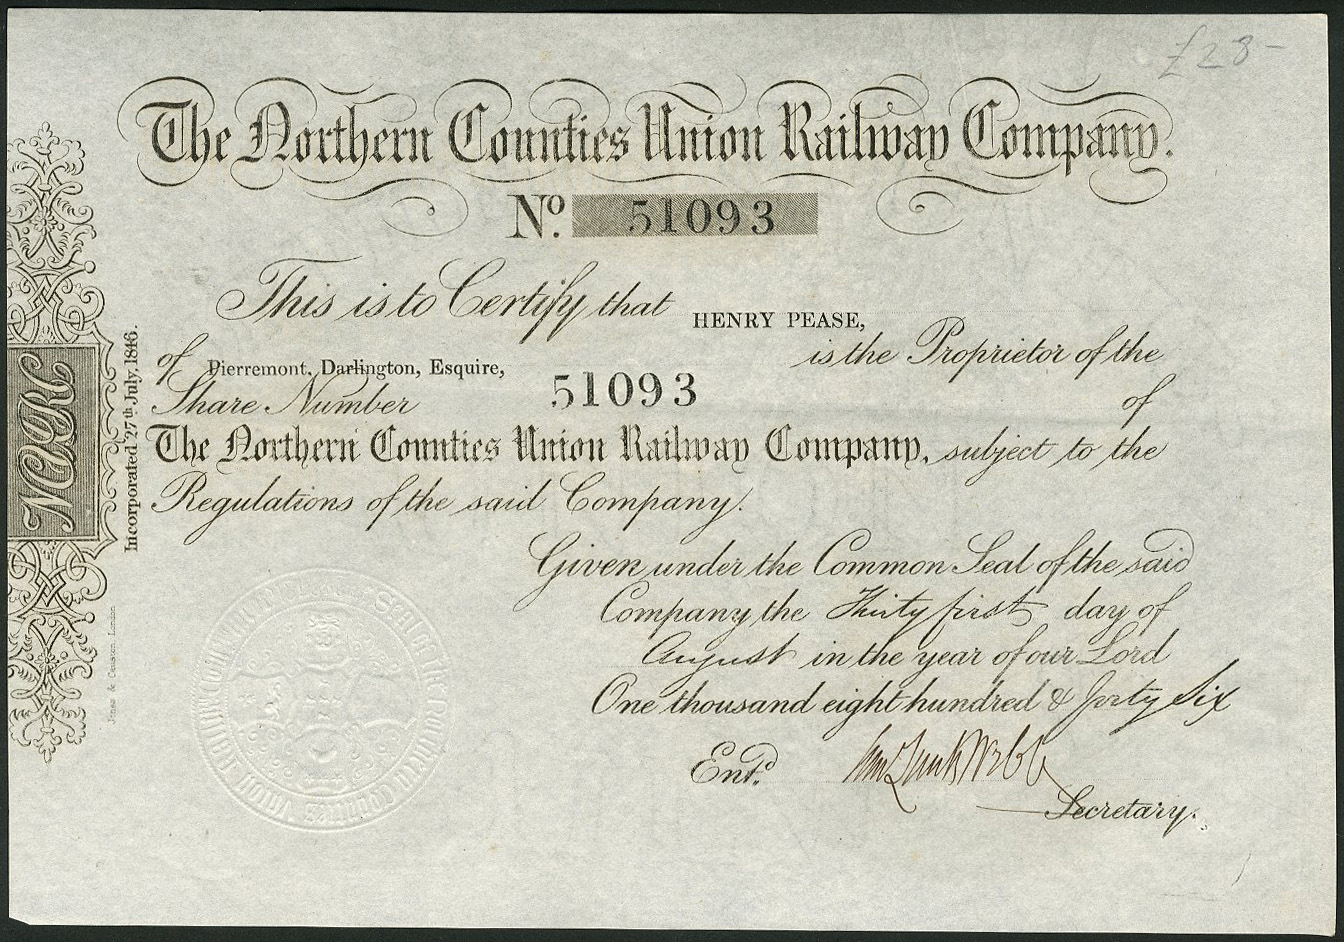 £28-
The Northern Counties Union Railway Company.
No. 51093
This is to Certify that HENRY PEASE,
of Pierremont, Darlington, Esquire, is the Proprietor of the
Share Number 51093 of
The Northern Counties Union Railway Company, subject to the
Regulations of the said Company.
Given under the Common Seal of the said
Company the Thirty first day of
August in the year of our Lord
One thousand eight hundred & forty six
Entd.
Secretary.
NCURC
Incorporated 27th July, 1846.
London